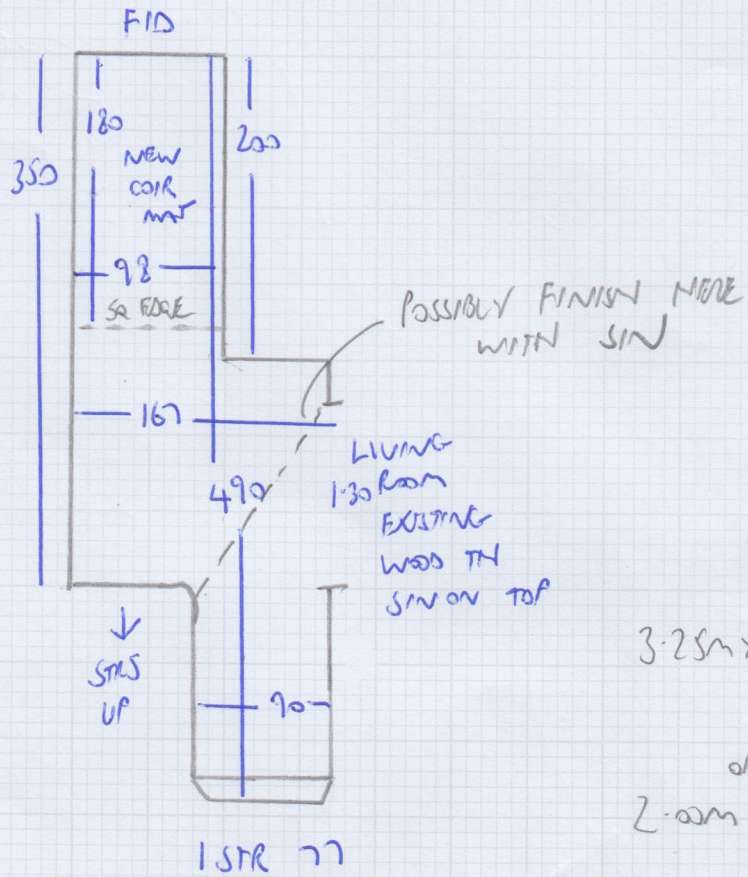 FID
180
200
350
NEW
COIR
MAT
98
SQ EDGE
POSSIBLY FINISH HERE
WITH SIN
167
LIVING
ROOM
1.30
490
EXISTING
WOOD TH
SIN ON TOP
STRS
UP
90
3.25m
2.00m
1 STR 77